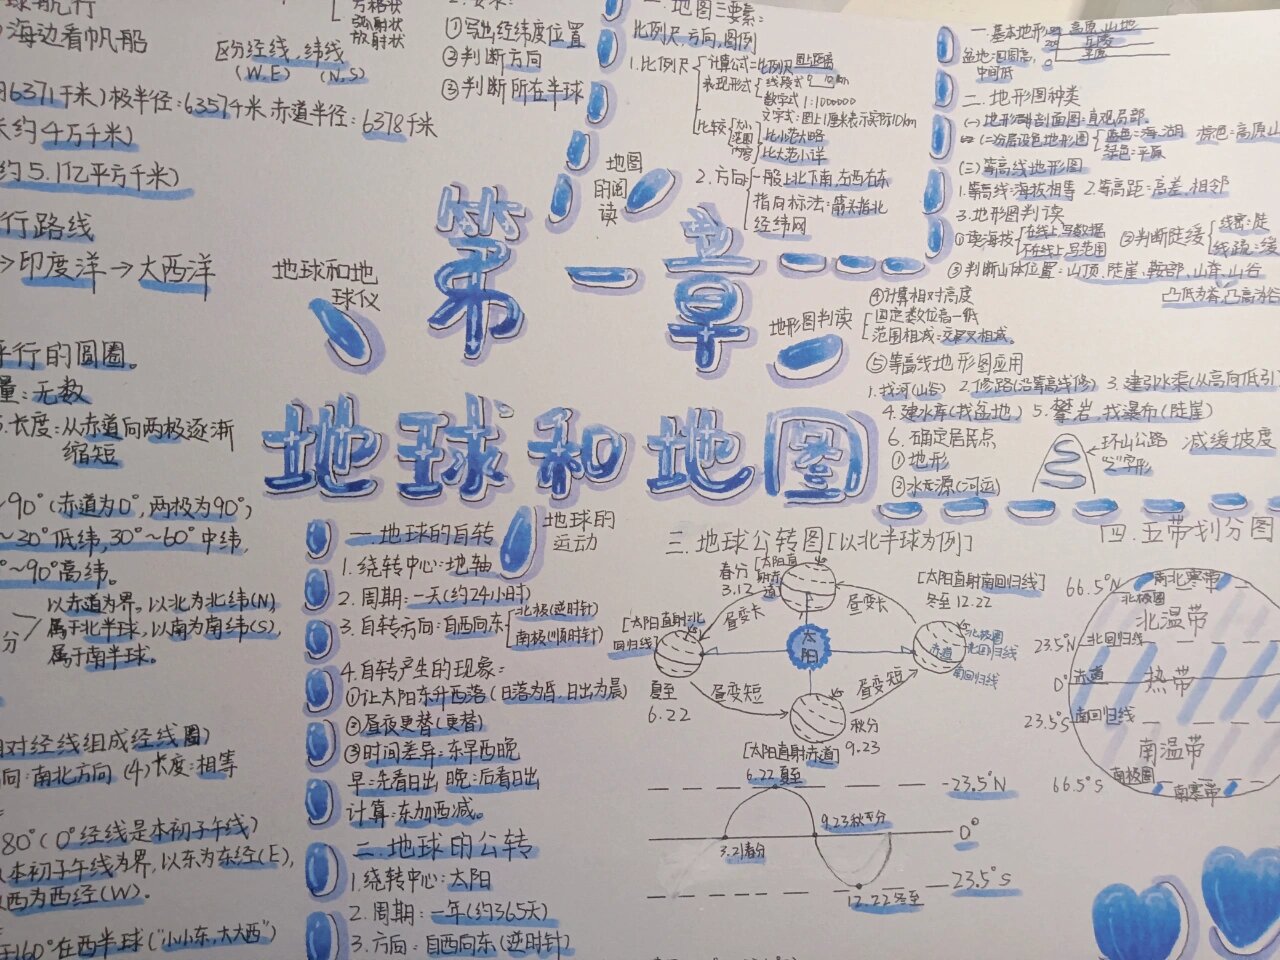 海边看帆船
区分经线,纬线
(W.E) (N.S)
6371千米)极半径:6357千米 赤道半径:6378千米
约4万千米)
约5.1亿平方千米)
行路线
→印度洋→大西洋
地球和地
球仪
平行的圆圈。
量:无数
长度:从赤道向两极逐渐
缩短
90°(赤道为0°,两极为90°;
~30°低纬,30°~60°中纬,
~90°高纬。
分
以赤道为界,以北为北纬(N),
属于北半球,以南为南纬(S),
属于南半球。
对经线组成经线圈)
向:南北方向 (4)长度:相等
80°(0°经线是本初子午线)
本初子午线为界,以东为东经(E),
西为西经(W)。
160°在西半球("小小东,大大西")
①写出经纬度位置
②判断方向
③判断所在半球
第一章
地球和地图
地图
的阅
读
地图三要素:
比例尺,方向,图例
1.比例尺
计算公式=比例尺=图上距离
表现形式
数字式 1:1000000
文字式:图上1厘米表示实际10km
比较
大小
范围
内容
比小范大略
比大范小详
2.方向
一般上北下南,左西右东
指向标法:箭头指北
经纬网
一.基本地形
高原,山地
丘陵
平原
盆地:四周高,
中间低
二.地形图种类
(一)地形剖面图:直观局部。
(二)分层设色地形图
蓝色=海,湖 棕色=高原山
绿色=平原
(三)等高线地形图
1.等高线:海拔相等 2.等高距:高差,相邻
3.地形图判读
①读海拔
在线上写数据
不在线上写范围
②判断陡缓
线密:陡
线疏:缓
③判断山体位置:山顶,陡崖,鞍部,山脊,山谷
凸低为脊,凸高为谷
地形图判读
④计算相对高度
范围相减:交叉相减。
⑤等高线地形图应用
1.找河(山谷) 2.修路(沿等高线修) 3.建引水渠(从高向低引
4.建水库(找盆地) 5.攀岩,找瀑布(陡崖)
6.确定居民点
①地形
②水源(河运)
环山公路 减缓坡度
"之"字形
地球的
运动
一.地球的自转
1.绕转中心:地轴
2.周期:一天(约24小时)
3.自转方向:自西向东
北极(逆时针)
南极(顺时针)
4.自转产生的现象:
①让太阳东升西落(日落为昏,日出为晨)
②昼夜更替(更替)
③时间差异:东早西晚
早:先看日出 晚:后看日出
计算:东加西减。
二.地球的公转
1.绕转中心:太阳
2.周期:一年(约365天)
3.方向:自西向东(逆时针)
三.地球公转图[以北半球为例]
春分
3.12
[太阳直
射赤
道]
昼变长
昼变长
[太阳直射南回归线]
冬至 12.22
[太阳直射北
回归线]
太
阳
赤道
北极圈
北回归线
南回归线
夏至
6.22
昼变短
昼变短
秋分
9.23
[太阳直射赤道]
6.22夏至
23.5°N
9.23秋分
0°
3.21春分
23.5°S
12.22冬至
四.五带划分图
66.5°N
北寒带
北极圈
北温带
23.5°N
北回归线
0°
赤道
热带
23.5°S
南回归线
南温带
66.5°S
南极圈
南寒带